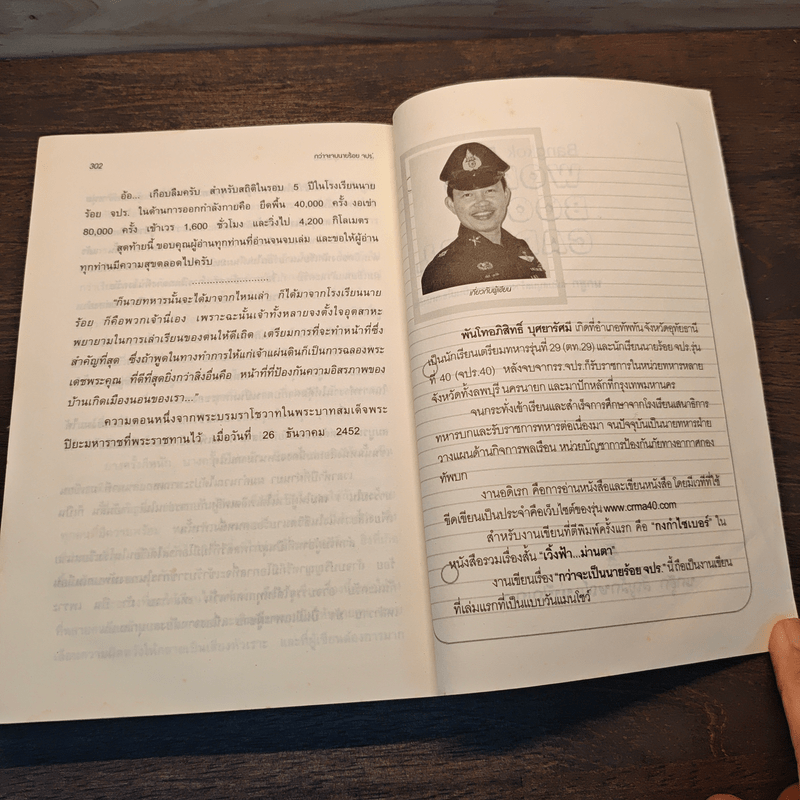 302
กว่าจะเป็นนายร้อย จปร.
อ้อ... เกือบลืมครับ สำหรับสถิติในรอบ 5 ปีในโรงเรียนนาย
ร้อย จปร. ในด้านการออกกำลังกายคือ ยึดพื้น 40,000 ครั้ง งอเข่า
80,000 ครั้ง เข้าเวร 1,600 ชั่วโมง และวิ่งไป 4,200 กิโลเมตร
สุดท้ายนี้ ขอบคุณผู้อ่านทุกท่านที่อ่านจนจบเล่ม และขอให้ผู้อ่าน
ทุกท่านมีความสุขตลอดไปครับ
........................
"ก็นายทหารนั้นจะได้มาจากไหนเล่า ก็ได้มาจากโรงเรียนนาย
ร้อย ก็คือพวกเจ้านี่เอง เพราะฉะนั้นเจ้าทั้งหลายจงตั้งใจอุตสาหะ
พยายามในการเล่าเรียนของตนให้ดีเถิด เตรียมการที่จะทำหน้าที่ซึ่ง
สำคัญที่สุด ซึ่งถ้าพูดในทางทำการให้แก่เจ้าแผ่นดินก็เป็นการฉลองพระ
เดชพระคุณ ที่ดีที่สุดยิ่งกว่าสิ่งอื่นคือ หน้าที่ที่ป้องกันความอิสรภาพของ
บ้านเกิดเมืองนอนของเรา..."
ความตอนหนึ่งจากพระบรมราโชวาทในพระบาทสมเด็จพระ
ปิยะมหาราชที่พระราชทานไว้ เมื่อวันที่ 26 ธันวาคม 2452
เกี่ยวกับผู้เขียน
พันโทอภิสิทธิ์ บุศยารัศมี เกิดที่อำเภอทัพทัน จังหวัดอุทัยธานี
เป็นนักเรียนเตรียมทหารรุ่นที่ 29 (ตท.29) และนักเรียนนายร้อย จปร.รุ่น
ที่ 40 (จปร.40) หลังจบจากรร.จปร.ก็รับราชการในหน่วยทหารหลาย
จังหวัดทั้งลพบุรี นครนายก และมาปักหลักที่กรุงเทพมหานคร
จนกระทั่งเข้าเรียนและสำเร็จการศึกษาจากโรงเรียนเสนาธิการ
ทหารบกและรับราชการทหารต่อเนื่องมา จนปัจจุบันเป็นนายทหารฝ่าย
วางแผนด้านกิจการพลเรือน หน่วยบัญชาการป้องกันภัยทางอากาศกอง
ทัพบก
งานอดิเรก คือการอ่านหนังสือและเขียนหนังสือ โดยมีเวทีที่ใช้
ขีดเขียนเป็นประจำคือเว็บไซต์ของรุ่น www.crma40.com
สำหรับงานเขียนที่ตีพิมพ์ครั้งแรก คือ "กงกำไซเบอร์" ใน
หนังสือรวมเรื่องสั้น "เวิ้งฟ้า...ม่านตา"
งานเขียนเรื่อง "กว่าจะเป็นนายร้อย จปร." นี้ ถือเป็นงานเขียน
ที่เล่มแรกที่เป็นแบบวันแมนโชว์